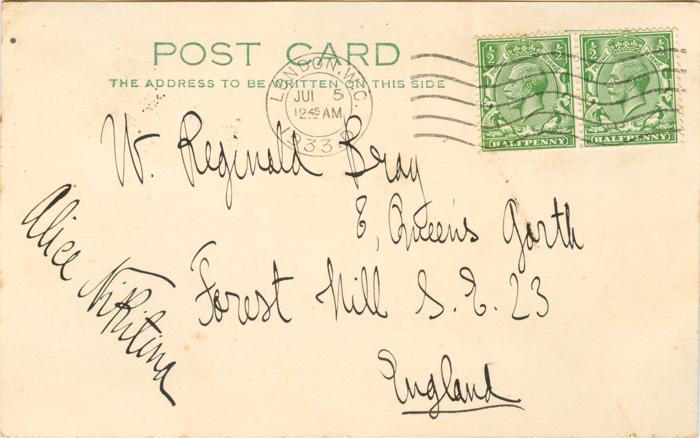 POST CARD
THE ADDRESS TO BE WRITTEN ON THIS SIDE
LONDON. W.C.
JUL 5
12 45 AM
1933
½ ½
HALFPENNY
½ ½
HALFPENNY
W. Reginald Bray
8, Queen's Garth
Forest Hill S.E. 23
England
Alice Nikitina